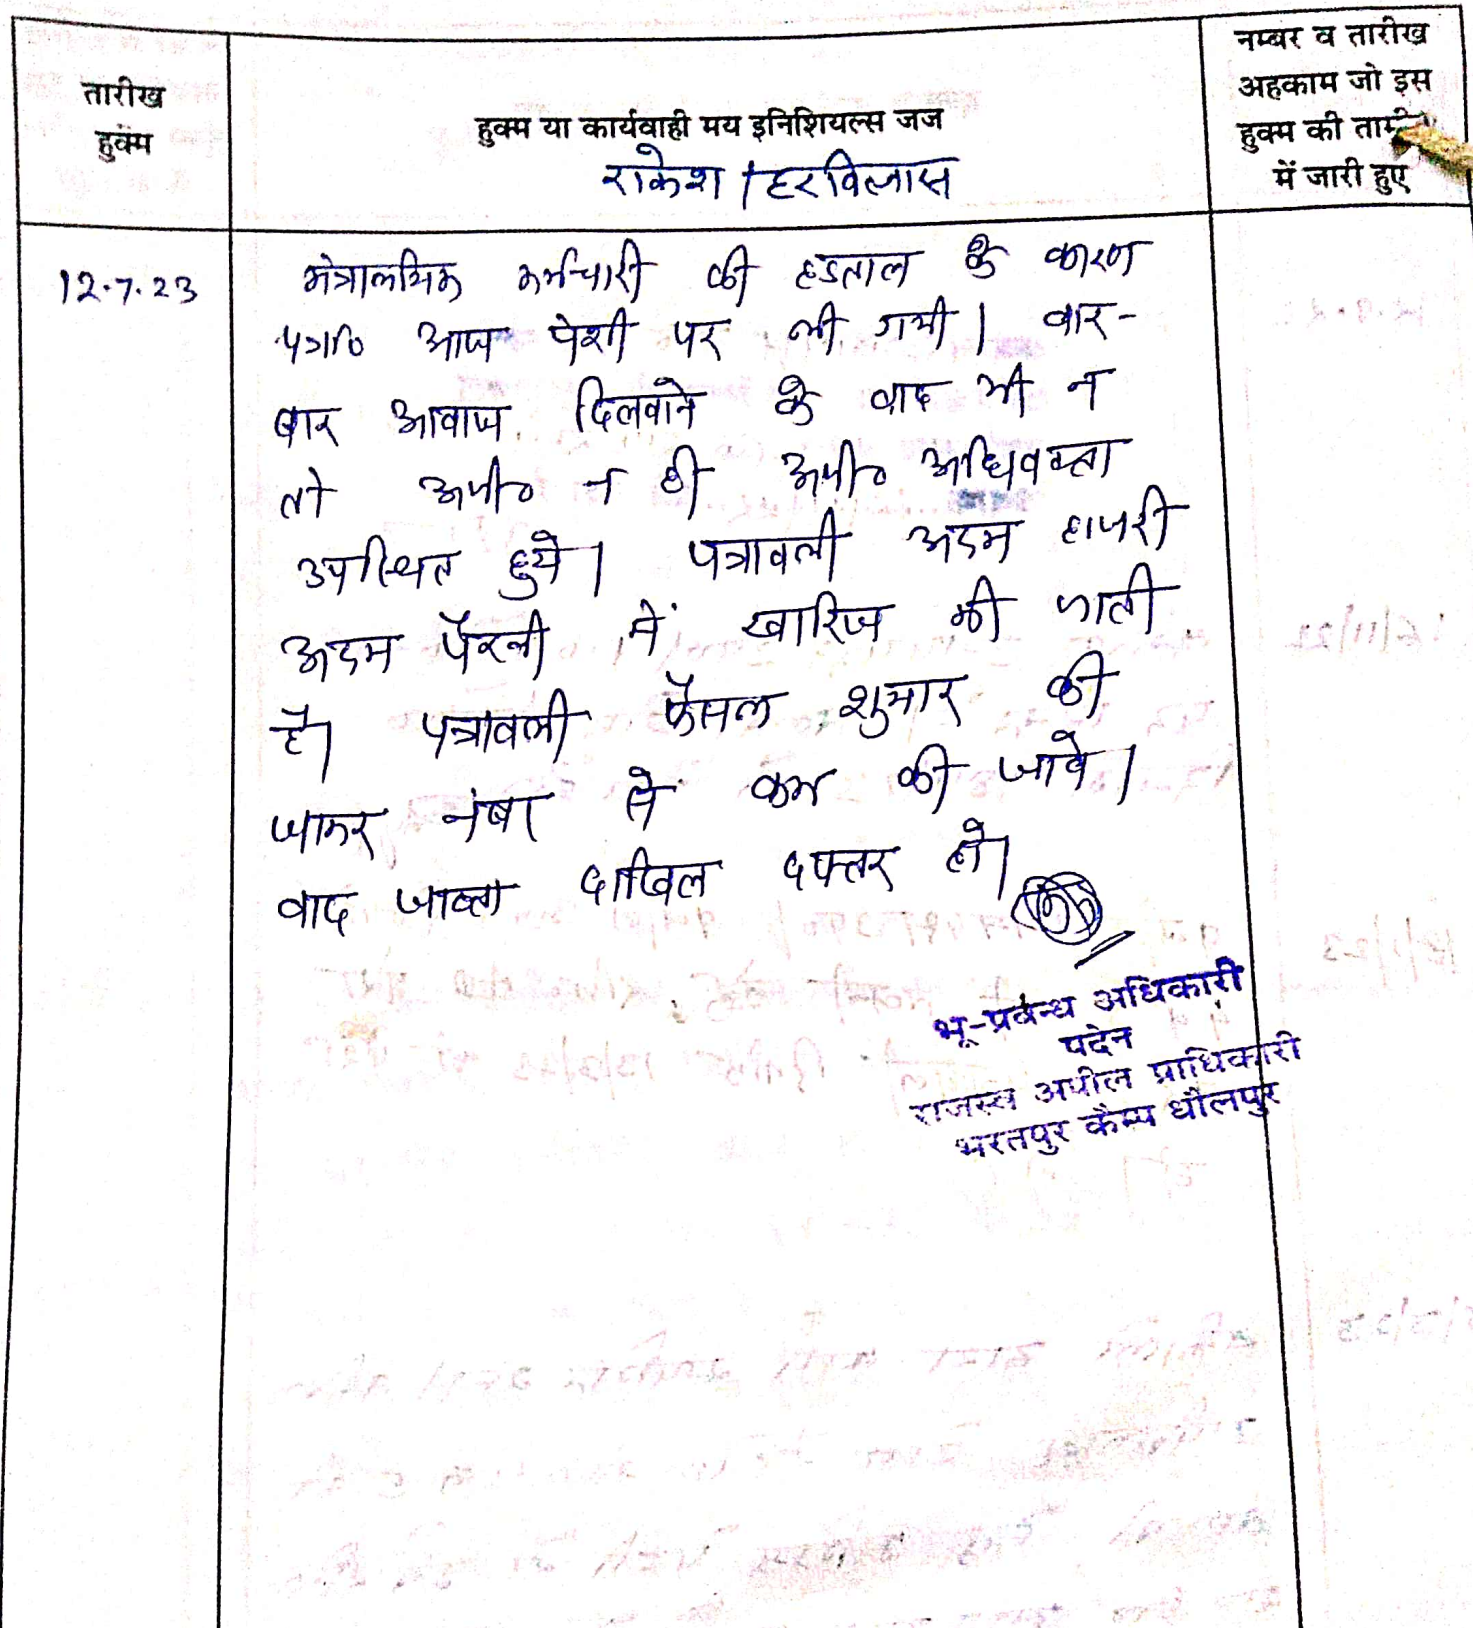 तारीख
हुक्म
हुक्म या कार्यवाही मय इनिशियल्स जज
राकेश / हरविलास
नम्बर व तारीख
अहकाम जो इस
हुक्म की
में जारी हुए
12.7.23
मंत्रालयिक कर्मचारी की हडताल के कारण
पत्रा० आज पेशी पर ली गयी। बार-
बार आवाज दिलवाने के वाद भी न
तो अपी० न ही अपी० अधिवक्ता
उपस्थित हुये। पत्रावली अदम हाजरी
अदम पैरवी में खारिज की जाती
है। पत्रावली फैसल शुमार की
जाकर नंबर से कम की जावे।
वाद जाब्ता दाखिल दफ्तर हो।
भू-प्रबन्ध अधिकारी
पदेन
राजस्व अपील प्राधिकारी
भरतपुर कैम्प धौलपुर